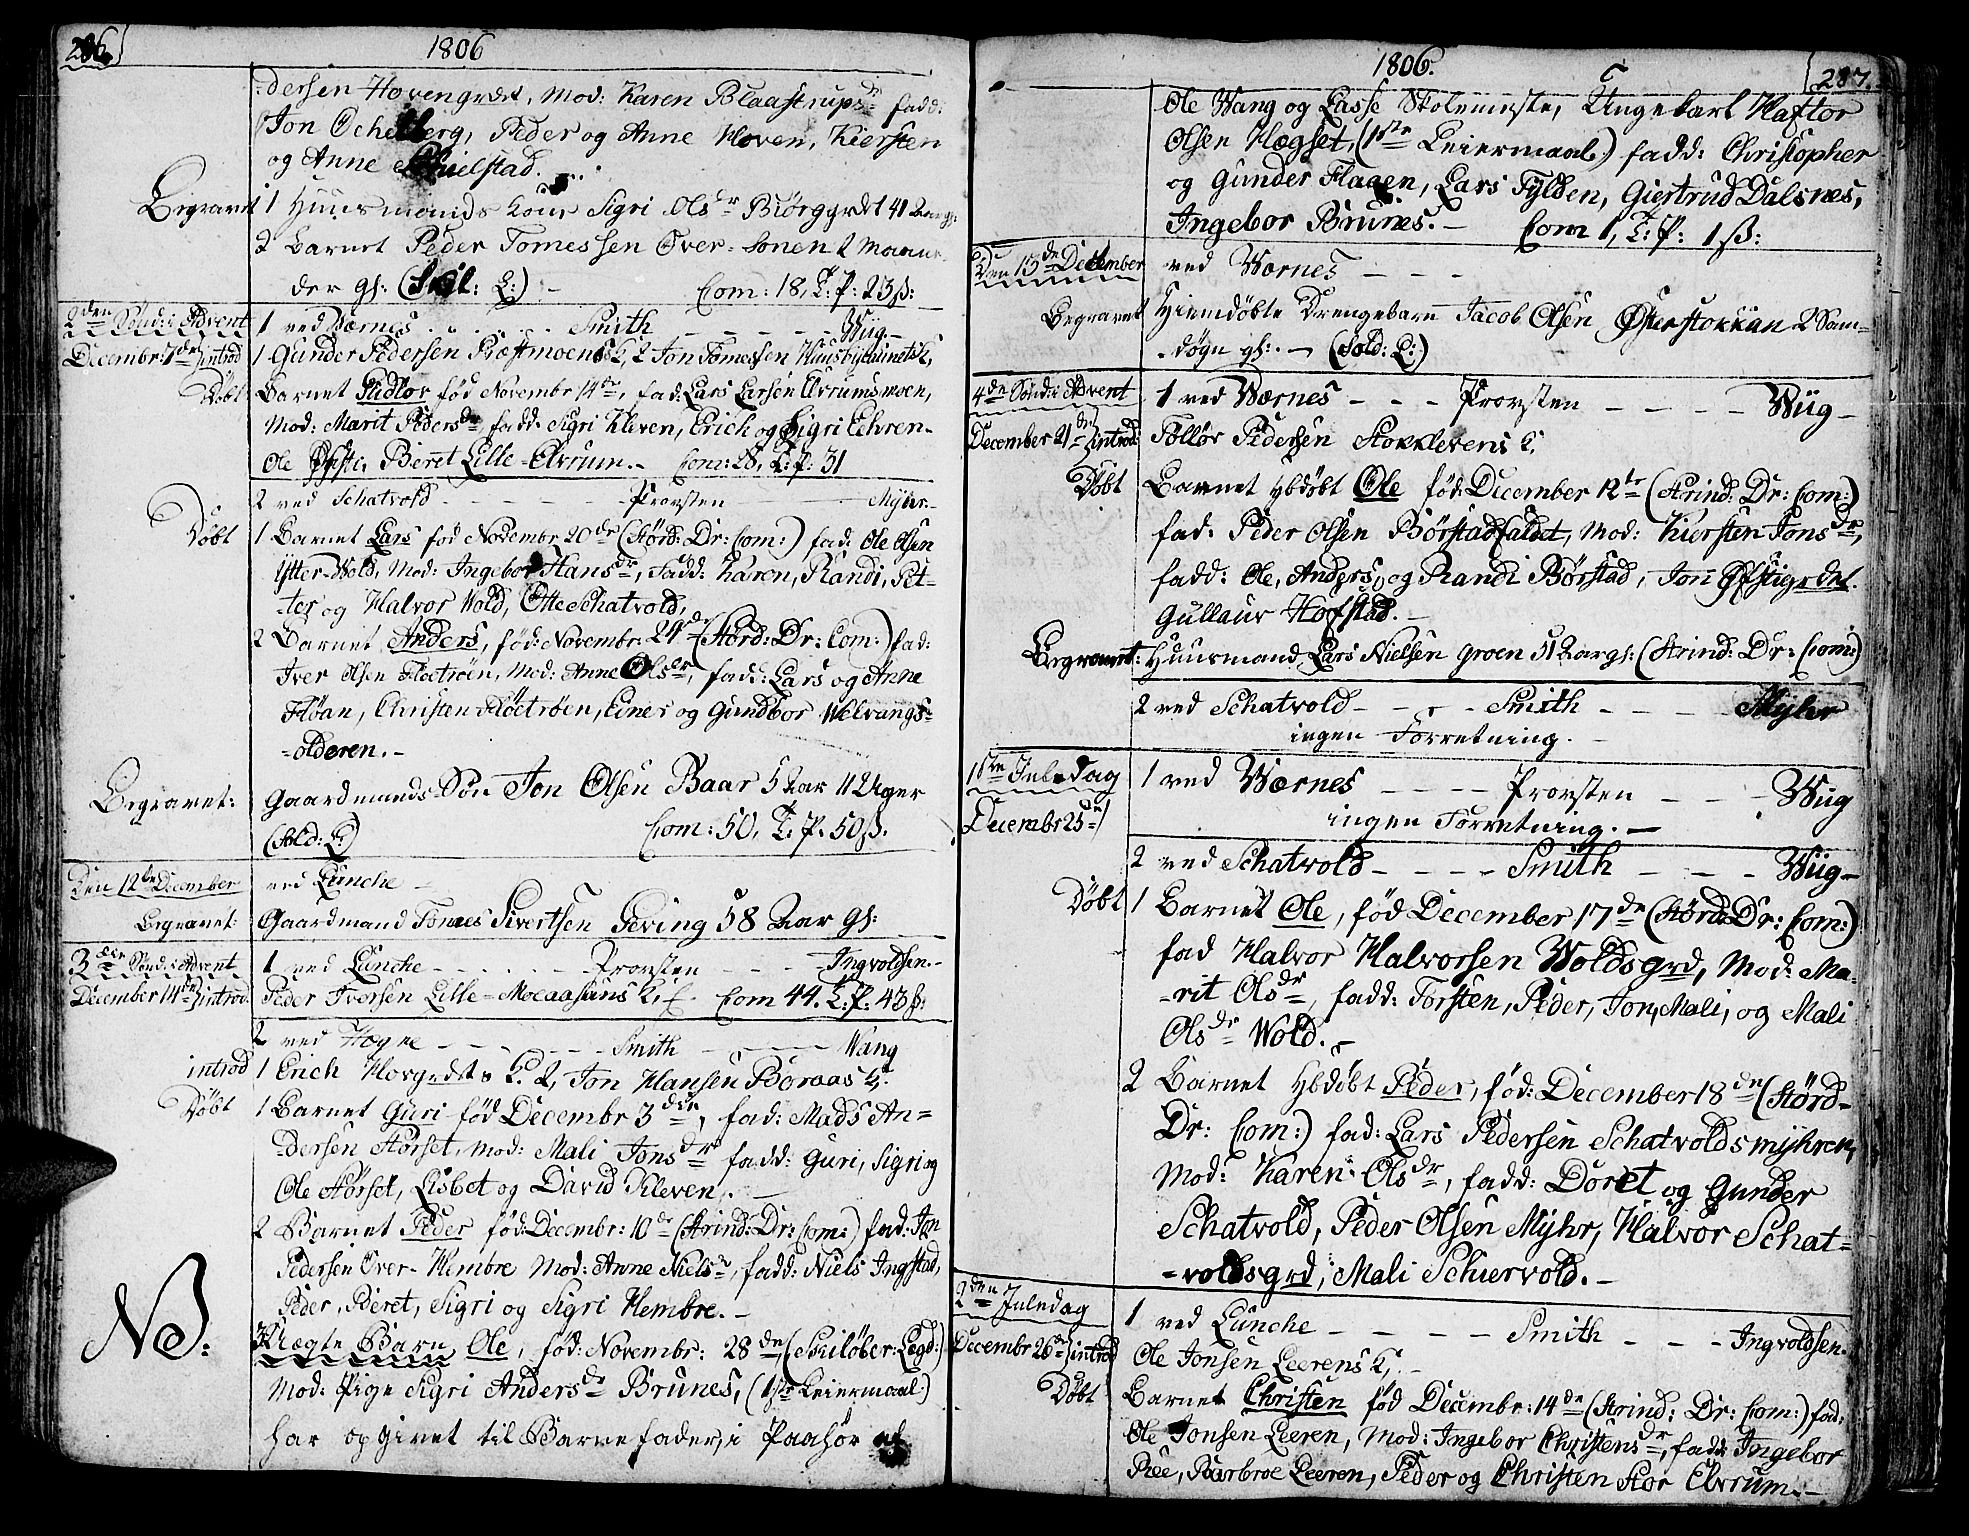 286.
1806
-dersen Hovengrdet, Mod: Karen Blaastrupsdr fadd:
Jon Ochelberg, Peder og Anne Hoven, Kiersten
og Anne Schielstad.
Begravet 1 Huusmands Kone Sigri Olsdr Biørggrdet 41 Aar gl:
2 Barnet Peder Tomessen Over-Sonen 2 Maane-
der gl: Com: 18, T: P: 23 ß:
2den Sønd: i Advent 1 ved Værnes - - - Smith - - - Wiig -
Decembr: 7de introd 1 Gunder Pedersen Ræstmoens K, 2 Jon Tomessen K,
Døbt Barnet Gudlor fød Novembr 14de, fad: Lars Larsen Elvrumsmoen,
Mod: Marit Pedersdr, fadd: Sigri Kleven, Erich og Sigri Lehren-
Ole Øfsti, Beret Lille-Elvrum. - Com: 28, T: P: 31
2 ved Schatvold - - - Provsten - - - Myhr -
Døbt 1 Barnet Lars fød Novembr 20de (Størd: Dr: Com:) fad: Ole Olsen
Ytter-Wold, Mod: Ingebor Hansdr, fadd: Karen, Randi, Pet-
-ter og Halvor Wold, Otte Schatvold,
2 Barnet Anders, fød: Novembr: 24de (Størd: Dr: Com:) fad:
Iver Olsen Floetrøen, Mod: Anne Olsdr, fadd: Lars og Anne
Fløan, Christen Floetrøen, Einer og Gundbor Welvangs-
-olderen. -
Begravet: Gaardmands Søn Jon Olsen Baar 5 Aar 11 Uger
(Sold: L:) Com: 50, T: P: 50 ß.
Den 12te December ved Lunche -
Begravet: Gaardmand Tomes Sivertsen Geving 58 Aar gl:
3die Sønd: i Advent 1 ved Lunche - - - Provsten - - - Ingvoldsen -
December 14de introd: Peder Iversen Lille-Moeaasens K, Com 44. T: P: 43 ß:
2 ved Hegne - - - Smith - - - Wang
introd 1 Erich Hovgrdets K. 2, Jon Hansen Boraas K.
Døbt 1 Barnet Guri fød Decembr 3die, fad: Mads An-
-dersen Størset, Mod: Mali Jonsdr fadd: Guri, Sigri og
Ole Størset, Lisbet og David Kleven. -
2 Barnet Peder fød: Decembr: 10de (Strind: Dr: Com:) fad: Jon
Pedersen Over-Hembre Mod: Anne Nielsdr, fadd: Niels Ingstad,
Peder, Beret, Sigri og Sigri Hembre. -
NB: 3 Uægte Barn Ole, fød: Novembr: 28de, (Skiløber: Legd:)
Mod: Pige Sigri Andersdr Brunes, (1ste Leiermaal)
har opgivet til Barnefader, i Paahør af
1806.
287.
Ole Wang og Lasse Skolemeste, Ungekarl Haftor
Olsen Hogset, (1ste Leiermaal) fadd: Christopher
og Gunder Flagen, Lars Fylden, Giertrud Dalsnes,
Ingebor Brunes. - Com 1, T: P: 1 ß:
Den 15de December ved Værnes - - -
Begravet Hiemdøbte Drengebarn Jacob Olsen Østerstokkan 2 Sam-
-døgn gl: - (Sold: L:)
4de Sønd: i Advent 1 ved Wærnes - - - Provsten - - - Wiig -
December 21de introd: Følløv Pedersen Stokklevens K,
Døbt Barnet hbdøbt Ole fød: December 12te (Strind: Dr: Com:)
fad: Peder Olsen Børstadsaldet, Mod: Kiersten Jonsdr,
fadd: Ole, Anders, og Randi Børstad, Jon Øfstigrdet
Gullaur Hofstad. -
Begravet: Huusmand Lars Nielsen Groen 51 Aar gl: (Strind: Dr: Com:)
2 ved Schatvold - - - Smith - - - Myhr
ingen Forretning. -
1ste Juledag 1 ved Wærnes - - - Provsten - - - Wiig
Decembr 25de ingen Forretning. -
2 ved Schatvold - - - Smith - - - Wiig -
Døbt 1 Barnet Ole, fød December 17de (Størd: Dr: Com:)
fad Halvor Halvorsen Woldsgrd, Mod: Ma-
-rit Olsdr, fadd: Torsten, Peder, Jon, Mali, og Mali
Olsdr Wold. -
2 Barnet hbdøbt Peder, fød: December 18de (Størd-
Dr: Com:) fad: Lars Pedersen Schatvoldsmyhren,
Mod: Karen Olsdr, fadd: Doret og Gunder
Schatvold, Peder Olsen Myhr, Halvor Schat-
-voldsgrd, Mali Schiervold. -
2den Juledag 1 ved Lunche - - - Smith - - - Ingvoldsen.
Decembr 26de introd Ole Jonsen Leerens K, -
Døbt Barnet Christen fød Decembr: 14de (Strind: Dr: Com:) fad:
Ole Jonsen Leeren, Mod: Ingebor Christensdr, fadd: Ingebor
Ree, Barbroe Leeren, Peder og Christen Stor Elvrum. -